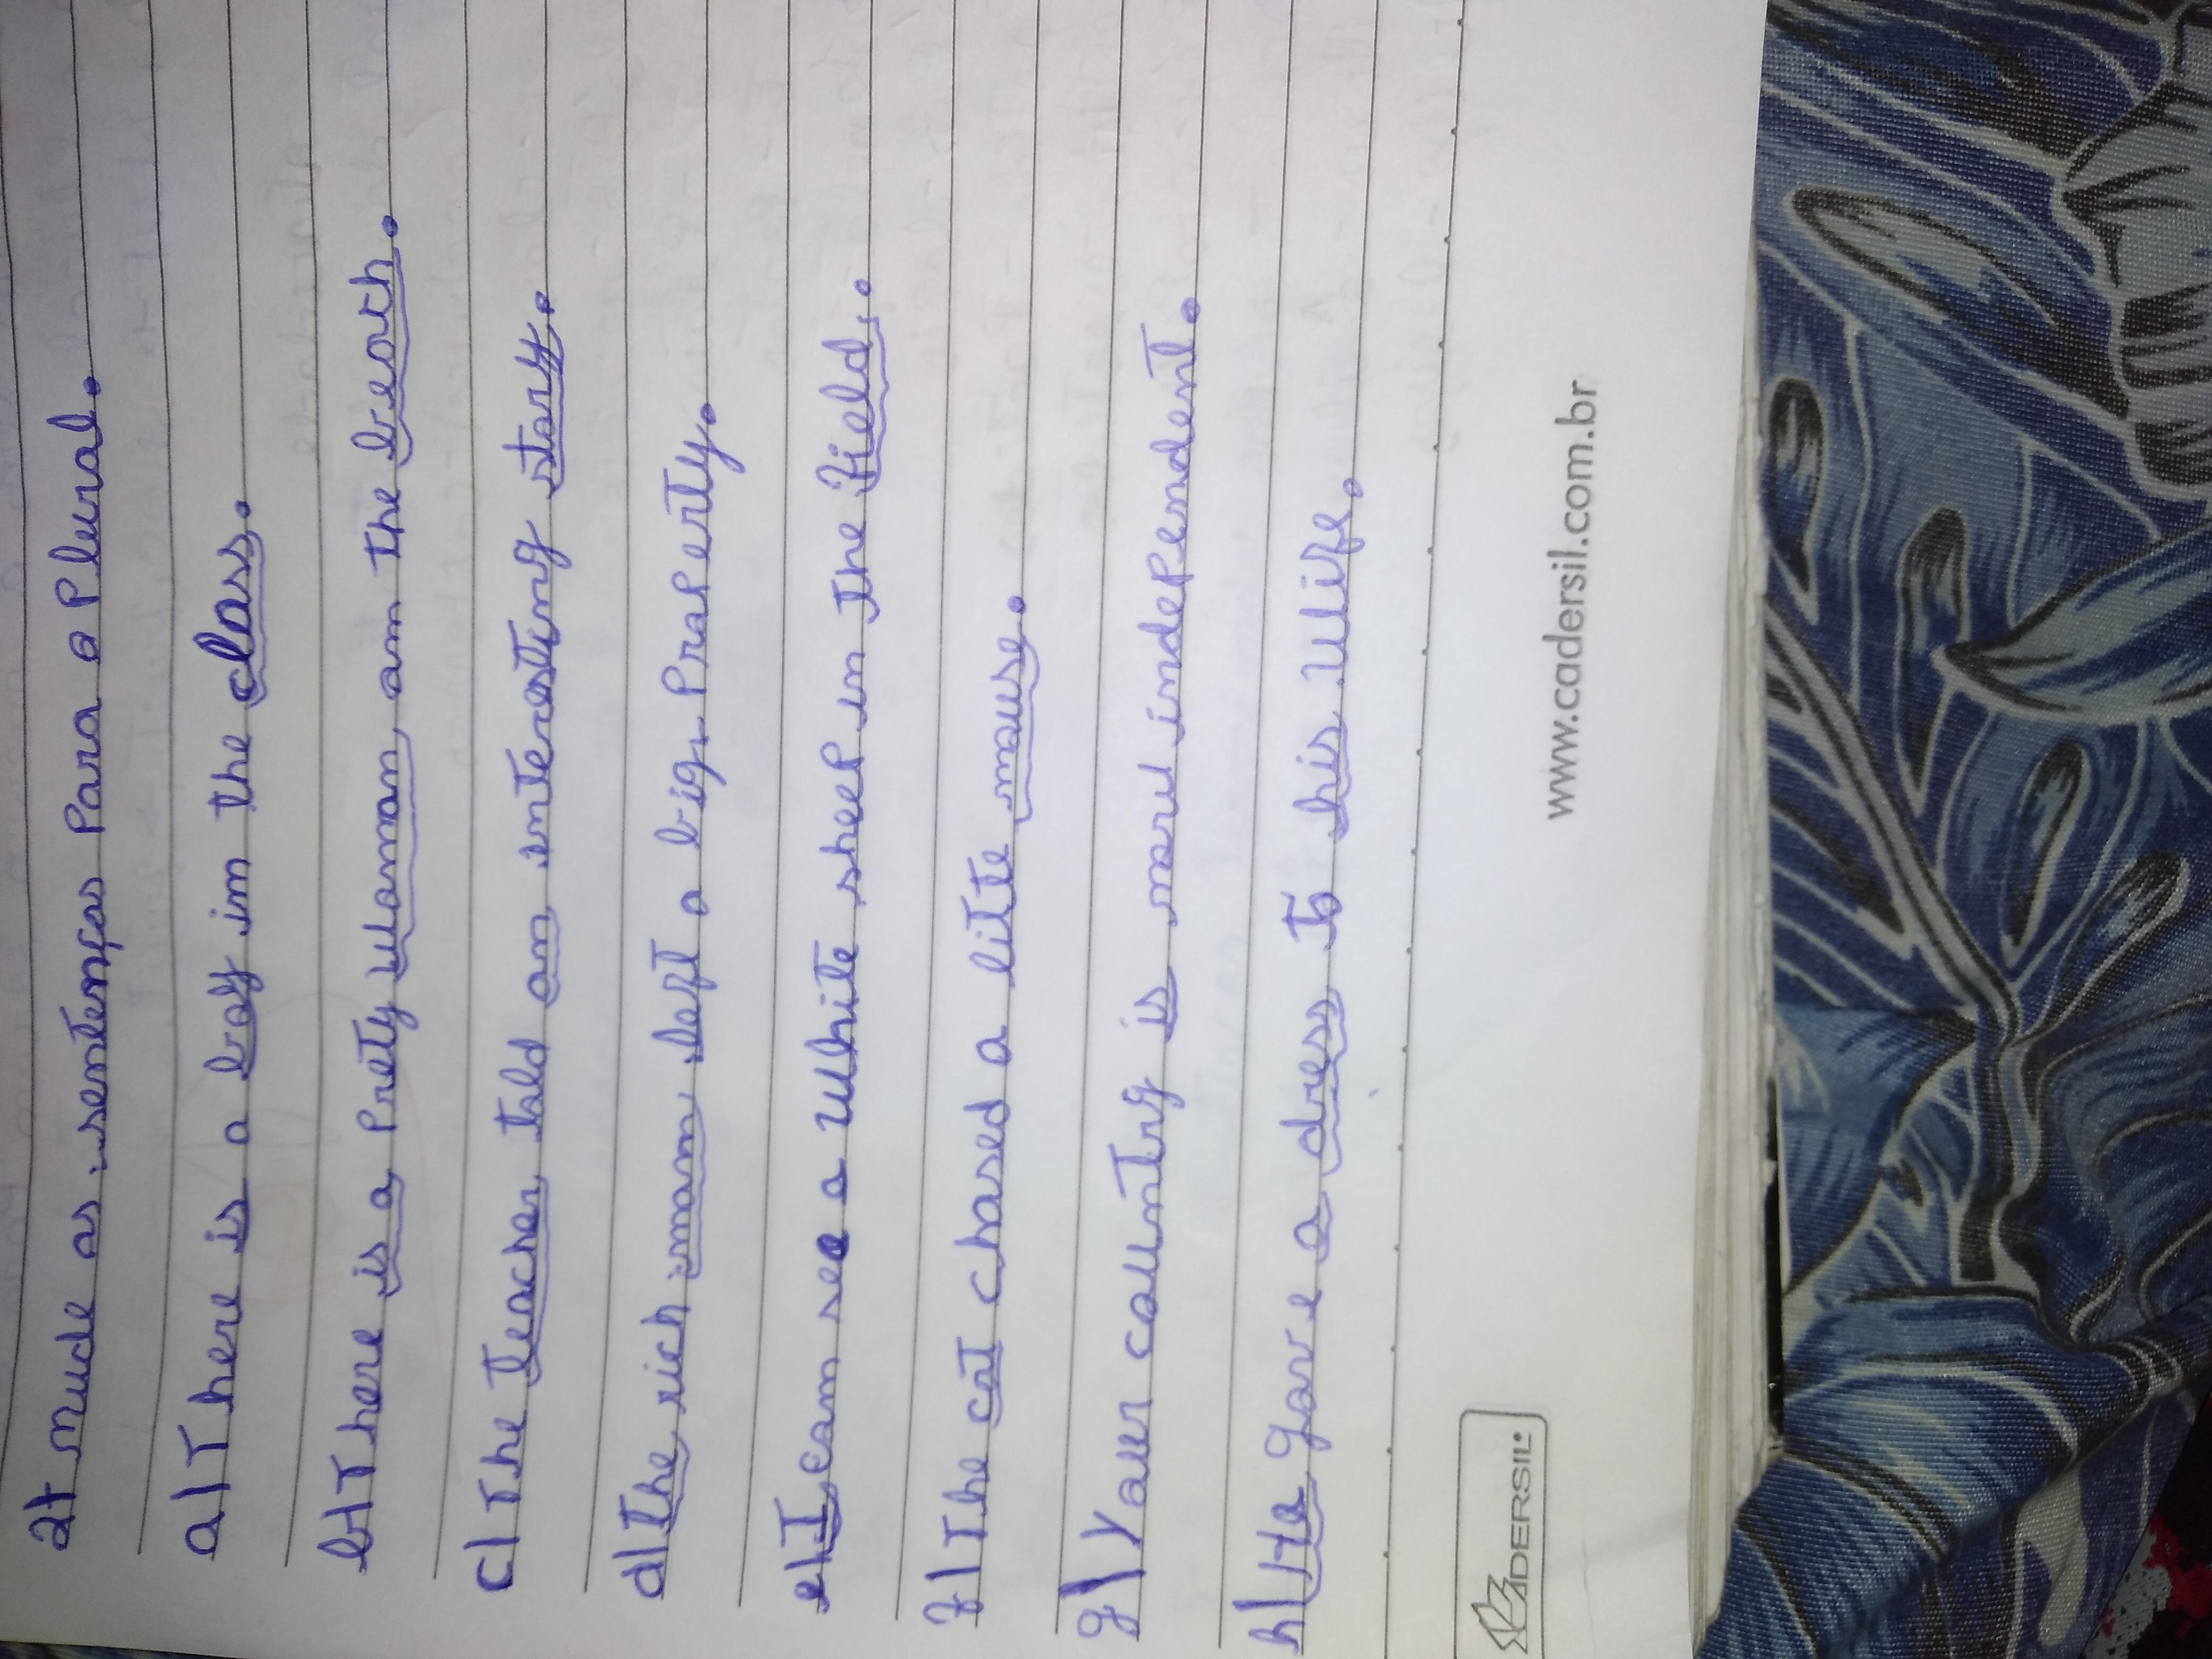 2) mude as sentenças Para o Plural.
a) There is a boy in the class.
b) There is a Prety woman on the beach.
c) The teacher told an interesting story.
d) The rich man left a big Property.
e) I can see a white sheep in the field.
f) The cat chased a litte mouse.
g) Your country is now independent.
h) He gave a dress to his wife.
CADERSIL
www.cadersil.com.br